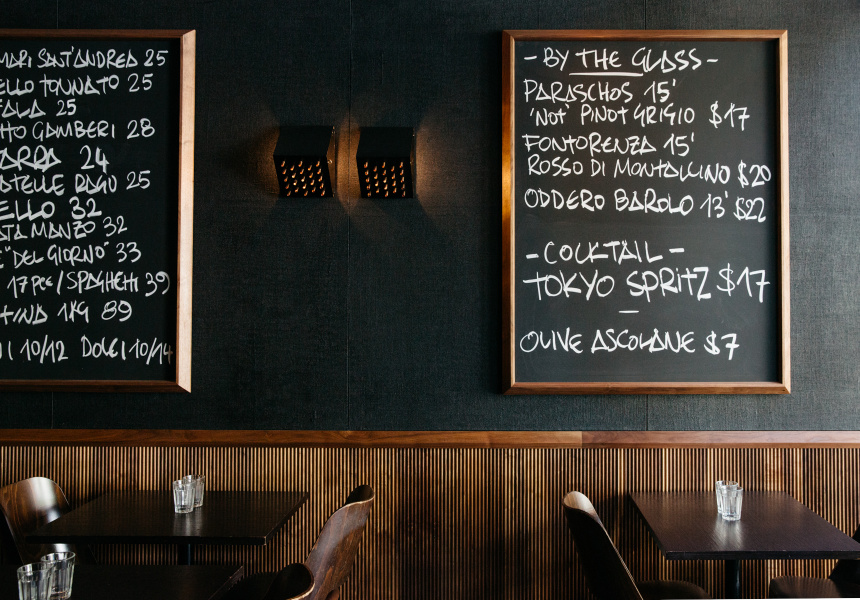 MARI SANT'ANDREA 25
ELLO TONNATO 25
FALA 25
TTO GAMBERI 28
ARRA 24
ATELLE RAGU 25
ELLO 32
ATA MANZO 32
E "DEL GIORNO" 33
17 PCE / SPAGHETTI 39
TINA 1KG 89
I 10/12 DOLCI 10/14
- BY THE GLASS -
PARASCHOS 15'
'NOT' PINOT GRIGIO $17
FONTORENZA 15'
ROSSO DI MONTALCINO $20
ODDERO BAROLO 13' $22
- COCKTAIL -
TOKYO SPRITZ $17
—
OLIVE ASCOLANE $7